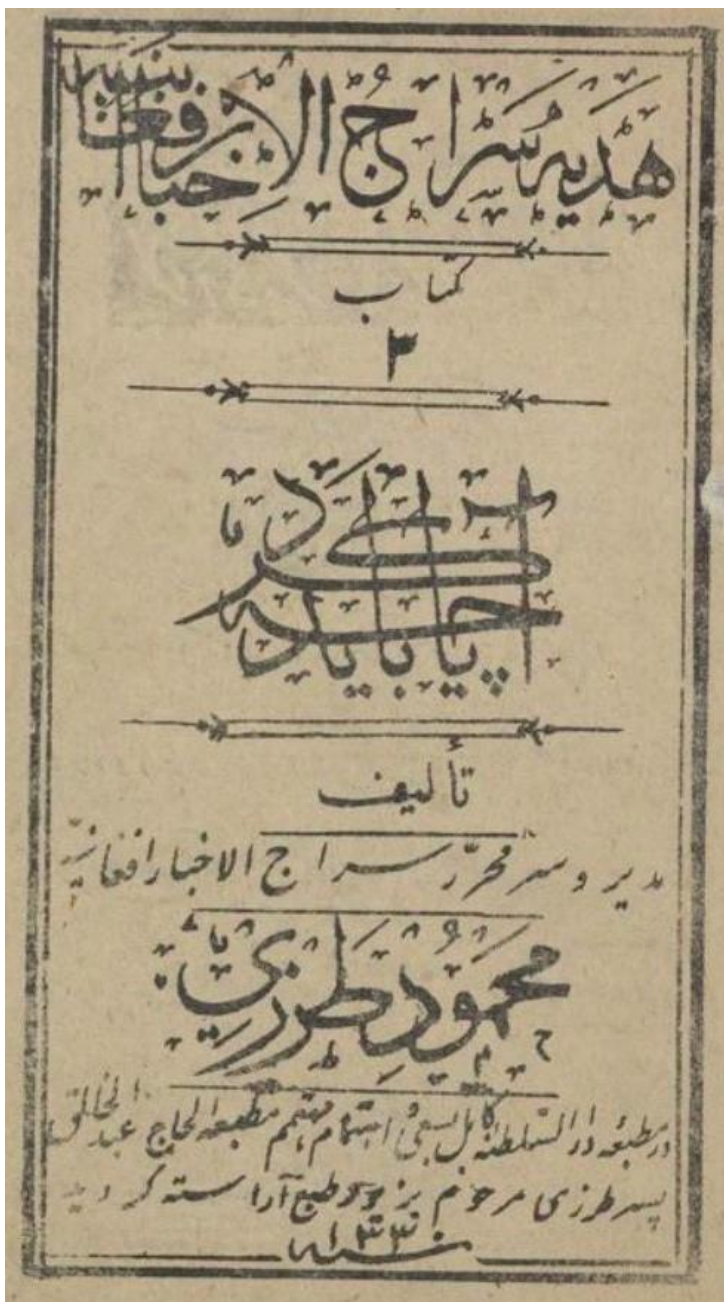 هَدیه سِرَاجُ الاخبار افغانیه
کتاب
۳
آیا چه باید کرد
تألیف
مدیر و سر محرّر سراج الاخبار افغانیّه
محمود طرزی
در مطبعه دار السّلطنه کابل بسعی و اهتمام مهتمم مطبعه الحاج عبد الخالق
پسر طرزی مرحوم بزیور طبع آراسته گردید
سنه ۱۳۳۰